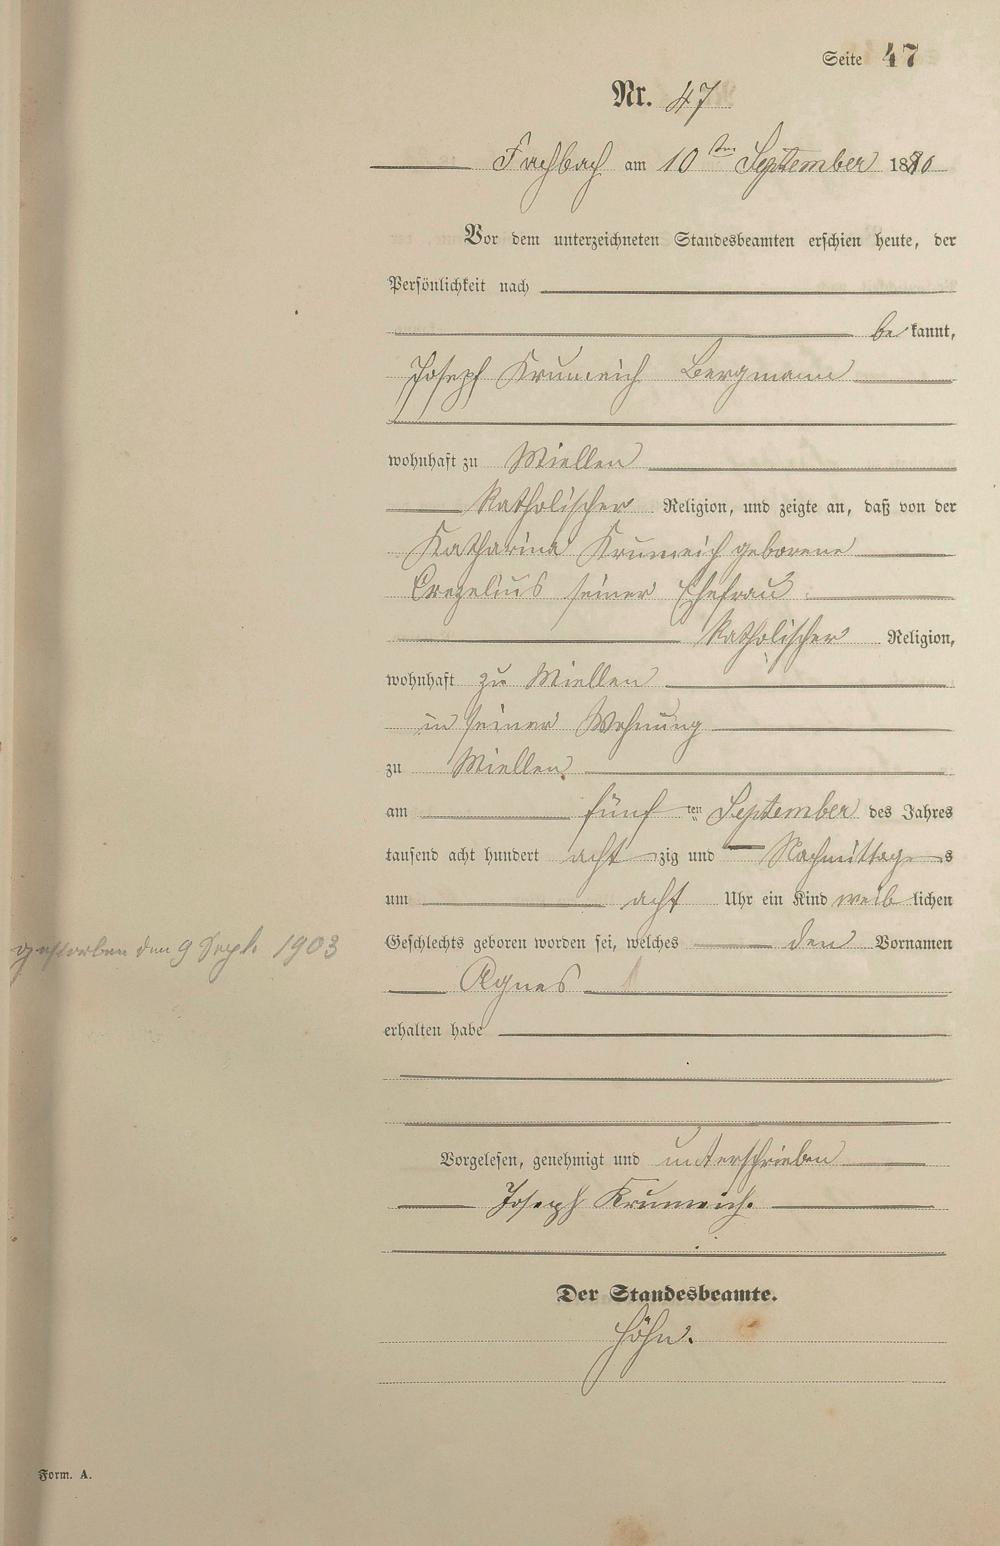 Seite 47
Nr. 47
Fachbach am 10ten September 1880
Vor dem unterzeichneten Standesbeamten erschien heute, der
Persönlichkeit nach
be kannt,
Joseph Krumeich Bergmann
wohnhaft zu Miellen
Katholischer Religion, und zeigte an, daß von der
Katharina Krumeich geborene
Cregelius seiner Ehefrau
Katholischer Religion,
wohnhaft zu Miellen
in seiner Wohnung
zu Miellen
am fünf ten September des Jahres
tausend acht hundert acht zig und Nachmittag s
um acht Uhr ein Kind weib lichen
Geschlechts geboren worden sei, welches den Vornamen
gestorben den 9 Sept. 1903
Agnes
erhalten habe
Vorgelesen, genehmigt und unterschrieben
Joseph Krumeich.
Der Standesbeamte.
Höhn.
Form. A.